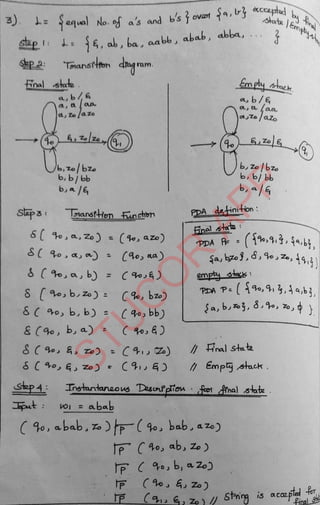 3). L = { equal No. of a's and b's } over {a, b} accepted by final state / Empty stack
Step 1: L = { ε, ab, ba, aabb, abab, abba, ... }
Step 2: Transition diagram.
Final state
a, b / ε
a, a / aa
a, z₀ / az₀
q₀
ε, z₀/z₀
q₁
b, z₀ / bz₀
b, b / bb
b, a / ε
Empty stack
a, b / ε
a, a / aa
a, z₀ / az₀
q₀
ε, z₀/ε
q₁
b, z₀ / bz₀
b, b / bb
b, a / ε
Step 3: Transition Function
δ ( q₀, a, z₀ ) = ( q₀, az₀ )
δ ( q₀, a, a ) = ( q₀, aa )
δ ( q₀, a, b ) = ( q₀, ε )
δ ( q₀, b, z₀ ) = ( q₀, bz₀ )
δ ( q₀, b, b ) = ( q₀, bb )
δ ( q₀, b, a ) = ( q₀, ε )
δ ( q₀, ε, z₀ ) = ( q₁, z₀ ) // Final state
δ ( q₀, ε, z₀ ) = ( q₁, ε ) // Empty stack.
PDA definition:
Final state:
PDA P = ( {q₀, q₁}, {a, b},
{a, b, z₀}, δ, q₀, z₀, {q₁} )
empty stack:
PDA P = ( {q₀, q₁}, {a, b},
{a, b, z₀}, δ, q₀, z₀, ϕ )
Step 4: Instantaneous Description for final state
Input: w₁ = abab
( q₀, abab, z₀ ) ⊢ₚ ( q₀, bab, az₀ )
⊢ₚ ( q₀, ab, z₀ )
⊢ₚ ( q₀, b, az₀ )
⊢ₚ ( q₀, ε, z₀ )
⊢ₚ ( q₁, ε, z₀ ) // String is accepted for final